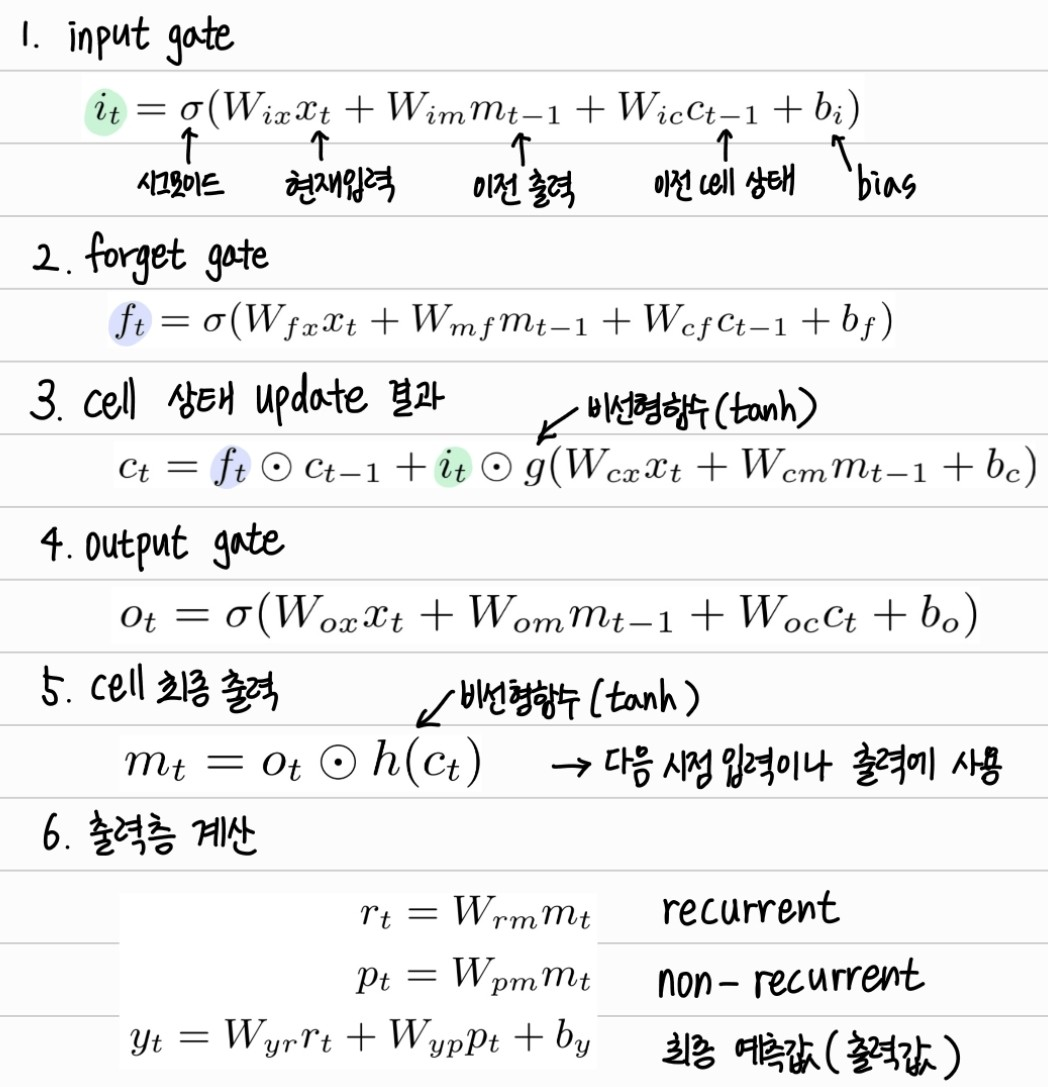 1. input gate
i_t = σ(W_{ix}x_t + W_{im}m_{t−1} + W_{ic}c_{t−1} + b_i)
시그모이드 현재입력 이전 출력 이전 cell 상태 bias
2. forget gate
f_t = σ(W_{fx}x_t + W_{mf}m_{t−1} + W_{cf}c_{t−1} + b_f)
3. cell 상태 update 결과
비선형함수(tanh)
c_t = f_t ⊙ c_{t−1} + i_t ⊙ g(W_{cx}x_t + W_{cm}m_{t−1} + b_c)
4. output gate
o_t = σ(W_{ox}x_t + W_{om}m_{t−1} + W_{oc}c_t + b_o)
5. cell 최종 출력
비선형함수(tanh)
m_t = o_t ⊙ h(c_t) → 다음 시점 입력이나 출력에 사용
6. 출력층 계산
r_t = W_{rm}m_t recurrent
p_t = W_{pm}m_t non-recurrent
y_t = W_{yr}r_t + W_{yp}p_t + b_y 최종 예측값(출력값)